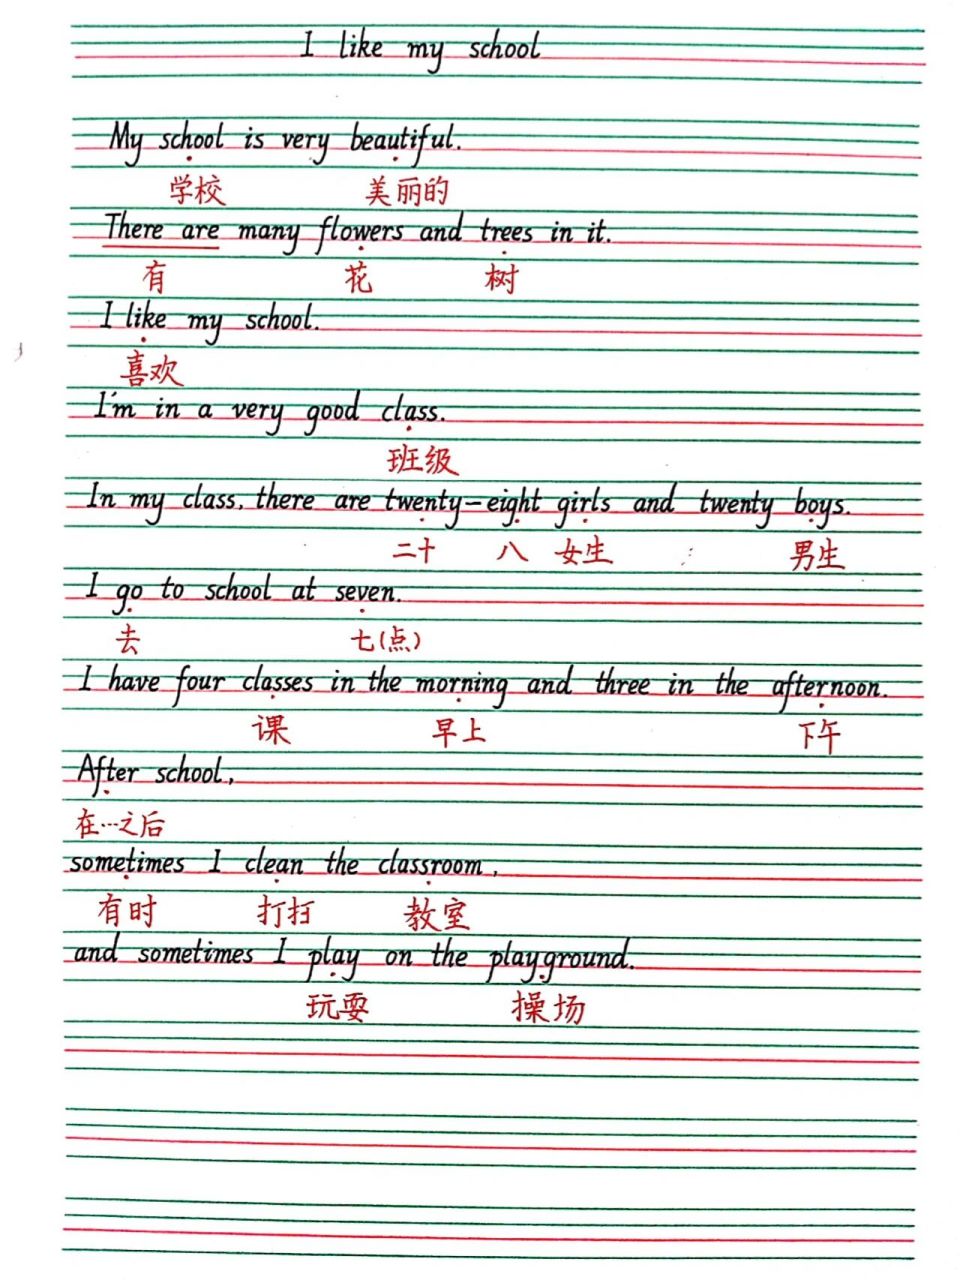 I like my school
My school is very beautiful.
学校 美丽的
There are many flowers and trees in it.
有 花 树
I like my school.
喜欢
I'm in a very good class.
班级
In my class, there are twenty-eight girls and twenty boys.
二十 八 女生 男生
I go to school at seven.
去 七(点)
I have four classes in the morning and three in the afternoon.
课 早上 下午
After school,
在…之后
sometimes I clean the classroom,
有时 打扫 教室
and sometimes I play on the playground.
玩耍 操场